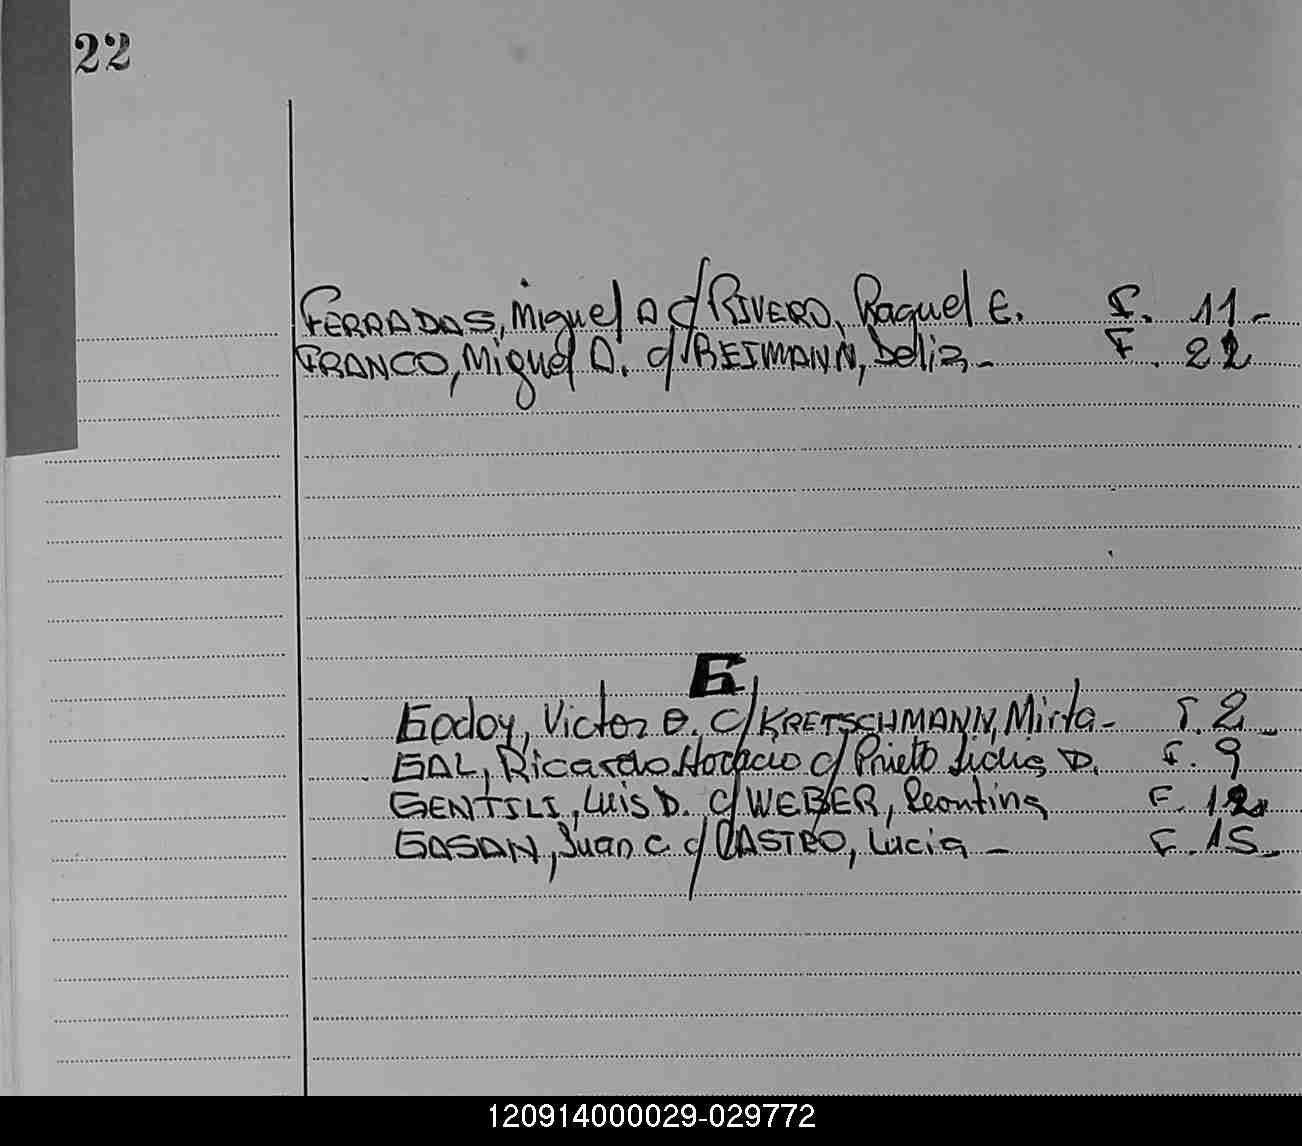 22
FERRADAS, Miguel A c/ RIVERO, Raquel E. F. 11-
FRANCO, Miguel A. c/ REIMANN, Delia - F. 22
G
Godoy, Victor O. c/ KRETSCHMANN, Mirta - F. 2 -
GAL, Ricardo Horacio c/ Prieto Lidia D. F. 9
GENTILI, Luis D. c/ WEBER, Leontina F. 12
GASAN, Juan C c/ CASTRO, Lucia - F. 15-
120914000029-029772